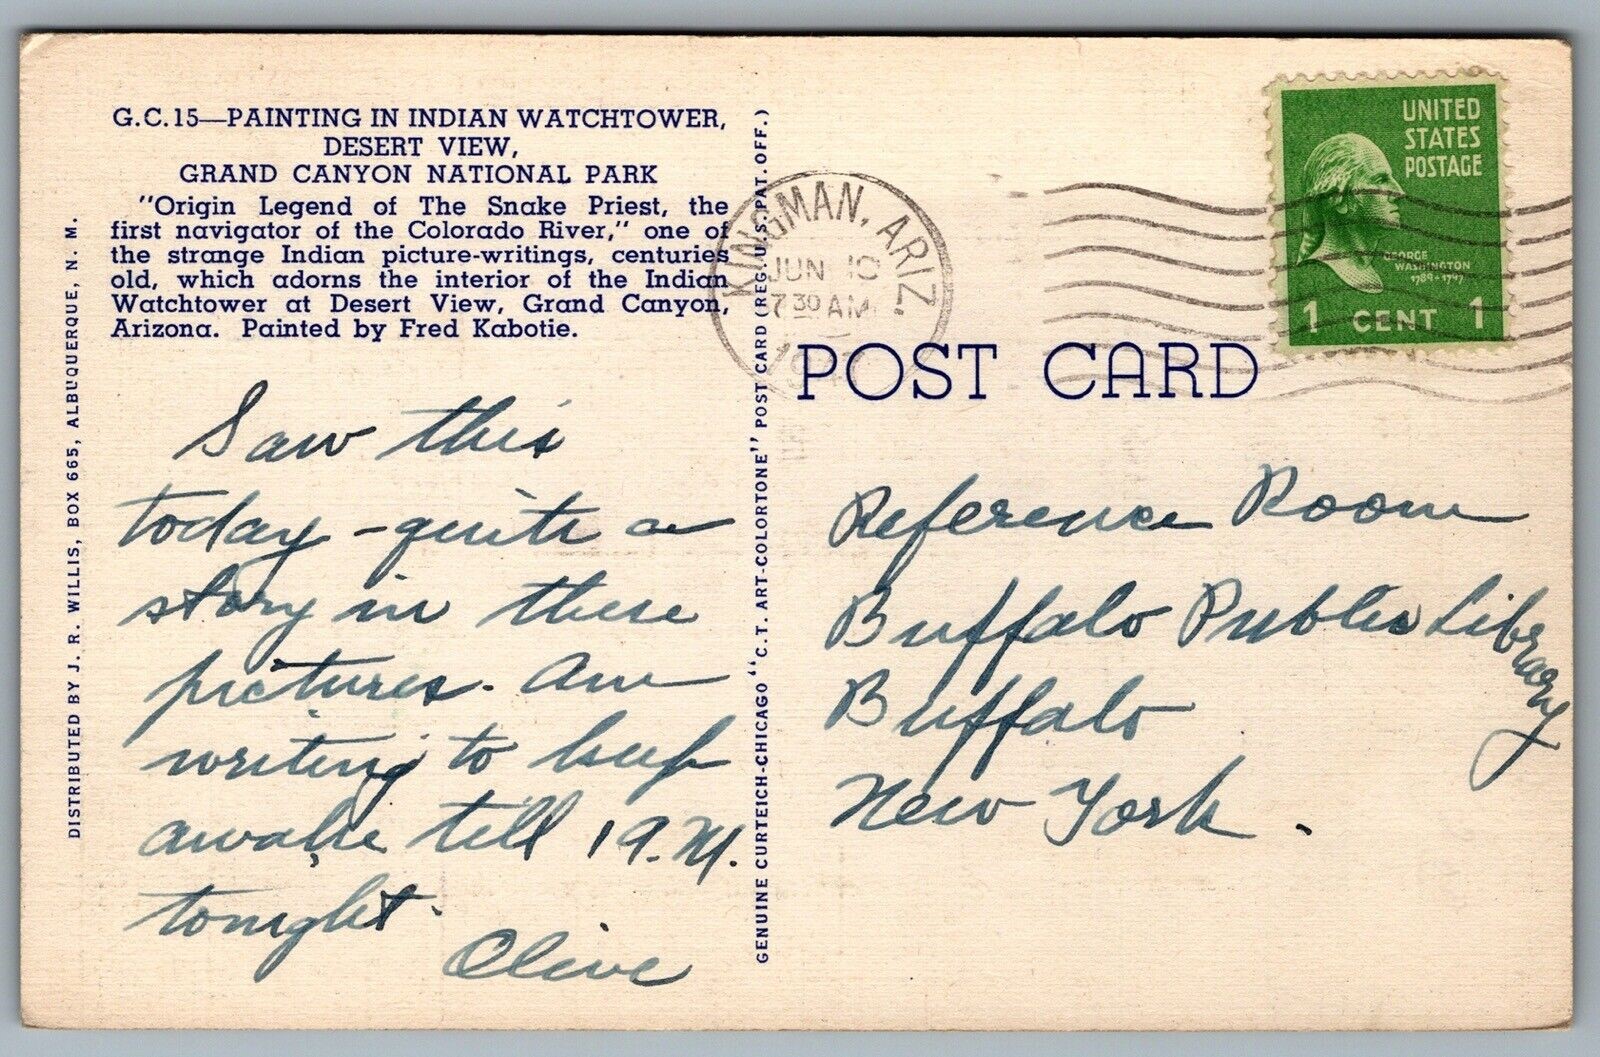 G.C.15—PAINTING IN INDIAN WATCHTOWER,
DESERT VIEW,
GRAND CANYON NATIONAL PARK
"Origin Legend of The Snake Priest, the
first navigator of the Colorado River," one of
the strange Indian picture-writings, centuries
old, which adorns the interior of the Indian
Watchtower at Desert View, Grand Canyon,
Arizona. Painted by Fred Kabotie.
Saw this
today - quite a
story in these
pictures. Am
writing to keep
awake till 1 A.M.
tonight.
Olive
DISTRIBUTED BY J. R. WILLIS, BOX 665, ALBUQUERQUE, N. M.
GENUINE CURTEICH-CHICAGO "C. T. ART-COLORTONE" POST CARD (REG. U.S. PAT. OFF.)
KINGMAN, ARIZ.
JUN 10
7 30 AM
POST CARD
UNITED
STATES
POSTAGE
GEORGE
WASHINGTON
1789-1797
1 CENT 1
Reference Room
Buffalo Public Library
Buffalo
New York.